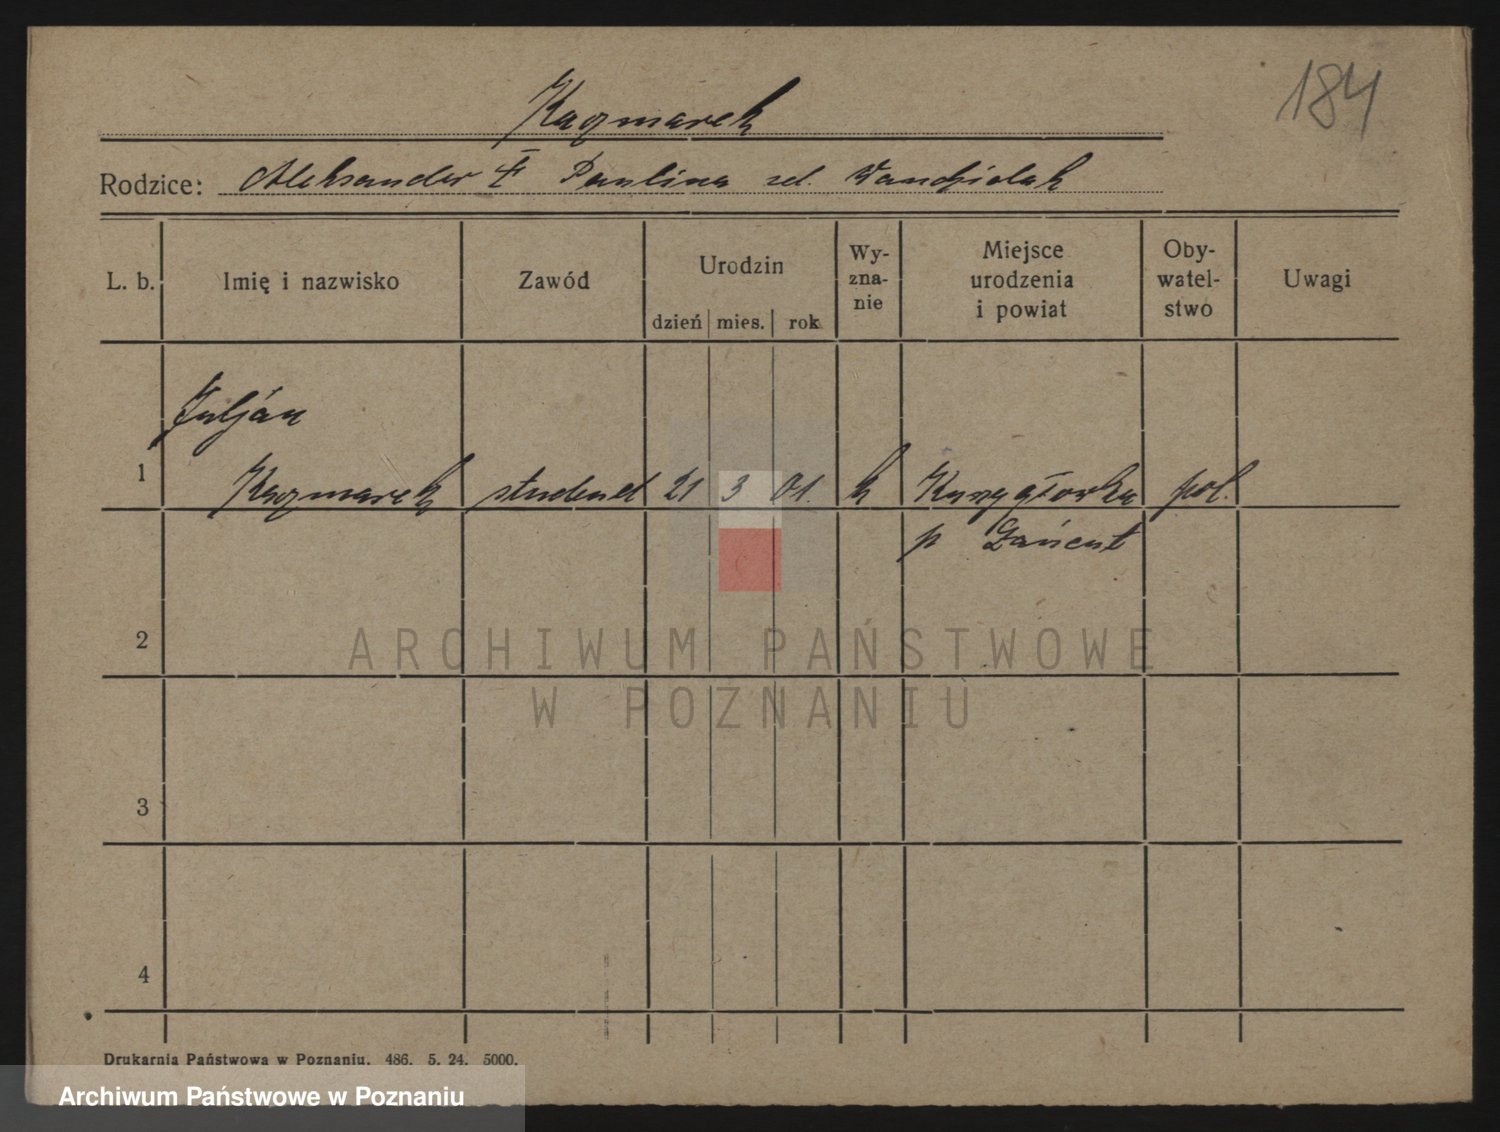 184
Kaczmarek
Rodzice: Aleksander i Paulina zd. Wandziolak
L. b. Imię i nazwisko Zawód Urodzin Wy-zna-nie Miejsce urodzenia i powiat Oby-watel-stwo Uwagi
dzień mies. rok
Juljan
1 Kaczmarek student 21 3 01. k pol.
p Łańcut
2
ARCHIWUM PAŃSTWOWE
W POZNANIU
3
4
Drukarnia Państwowa w Poznaniu. 486. 5. 24. 5000.
Archiwum Państwowe w Poznaniu